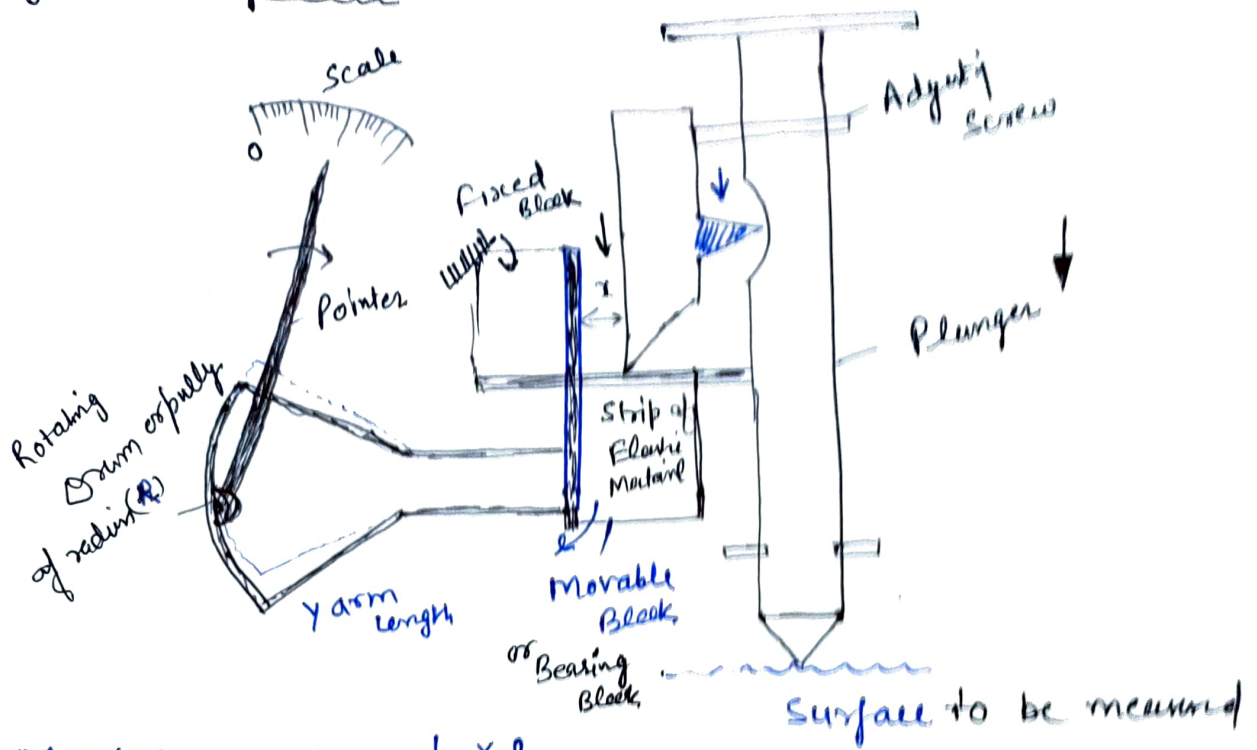 Scale
0
Adjustig
Screw
Fixed
Block
x
Pointer
Plunger
Rotating
Drum or pully
of radius (R)
Strip of
Elastic
Material
Y arm
Length
Movable
Block
or
Bearing
Block
Surface to be measured